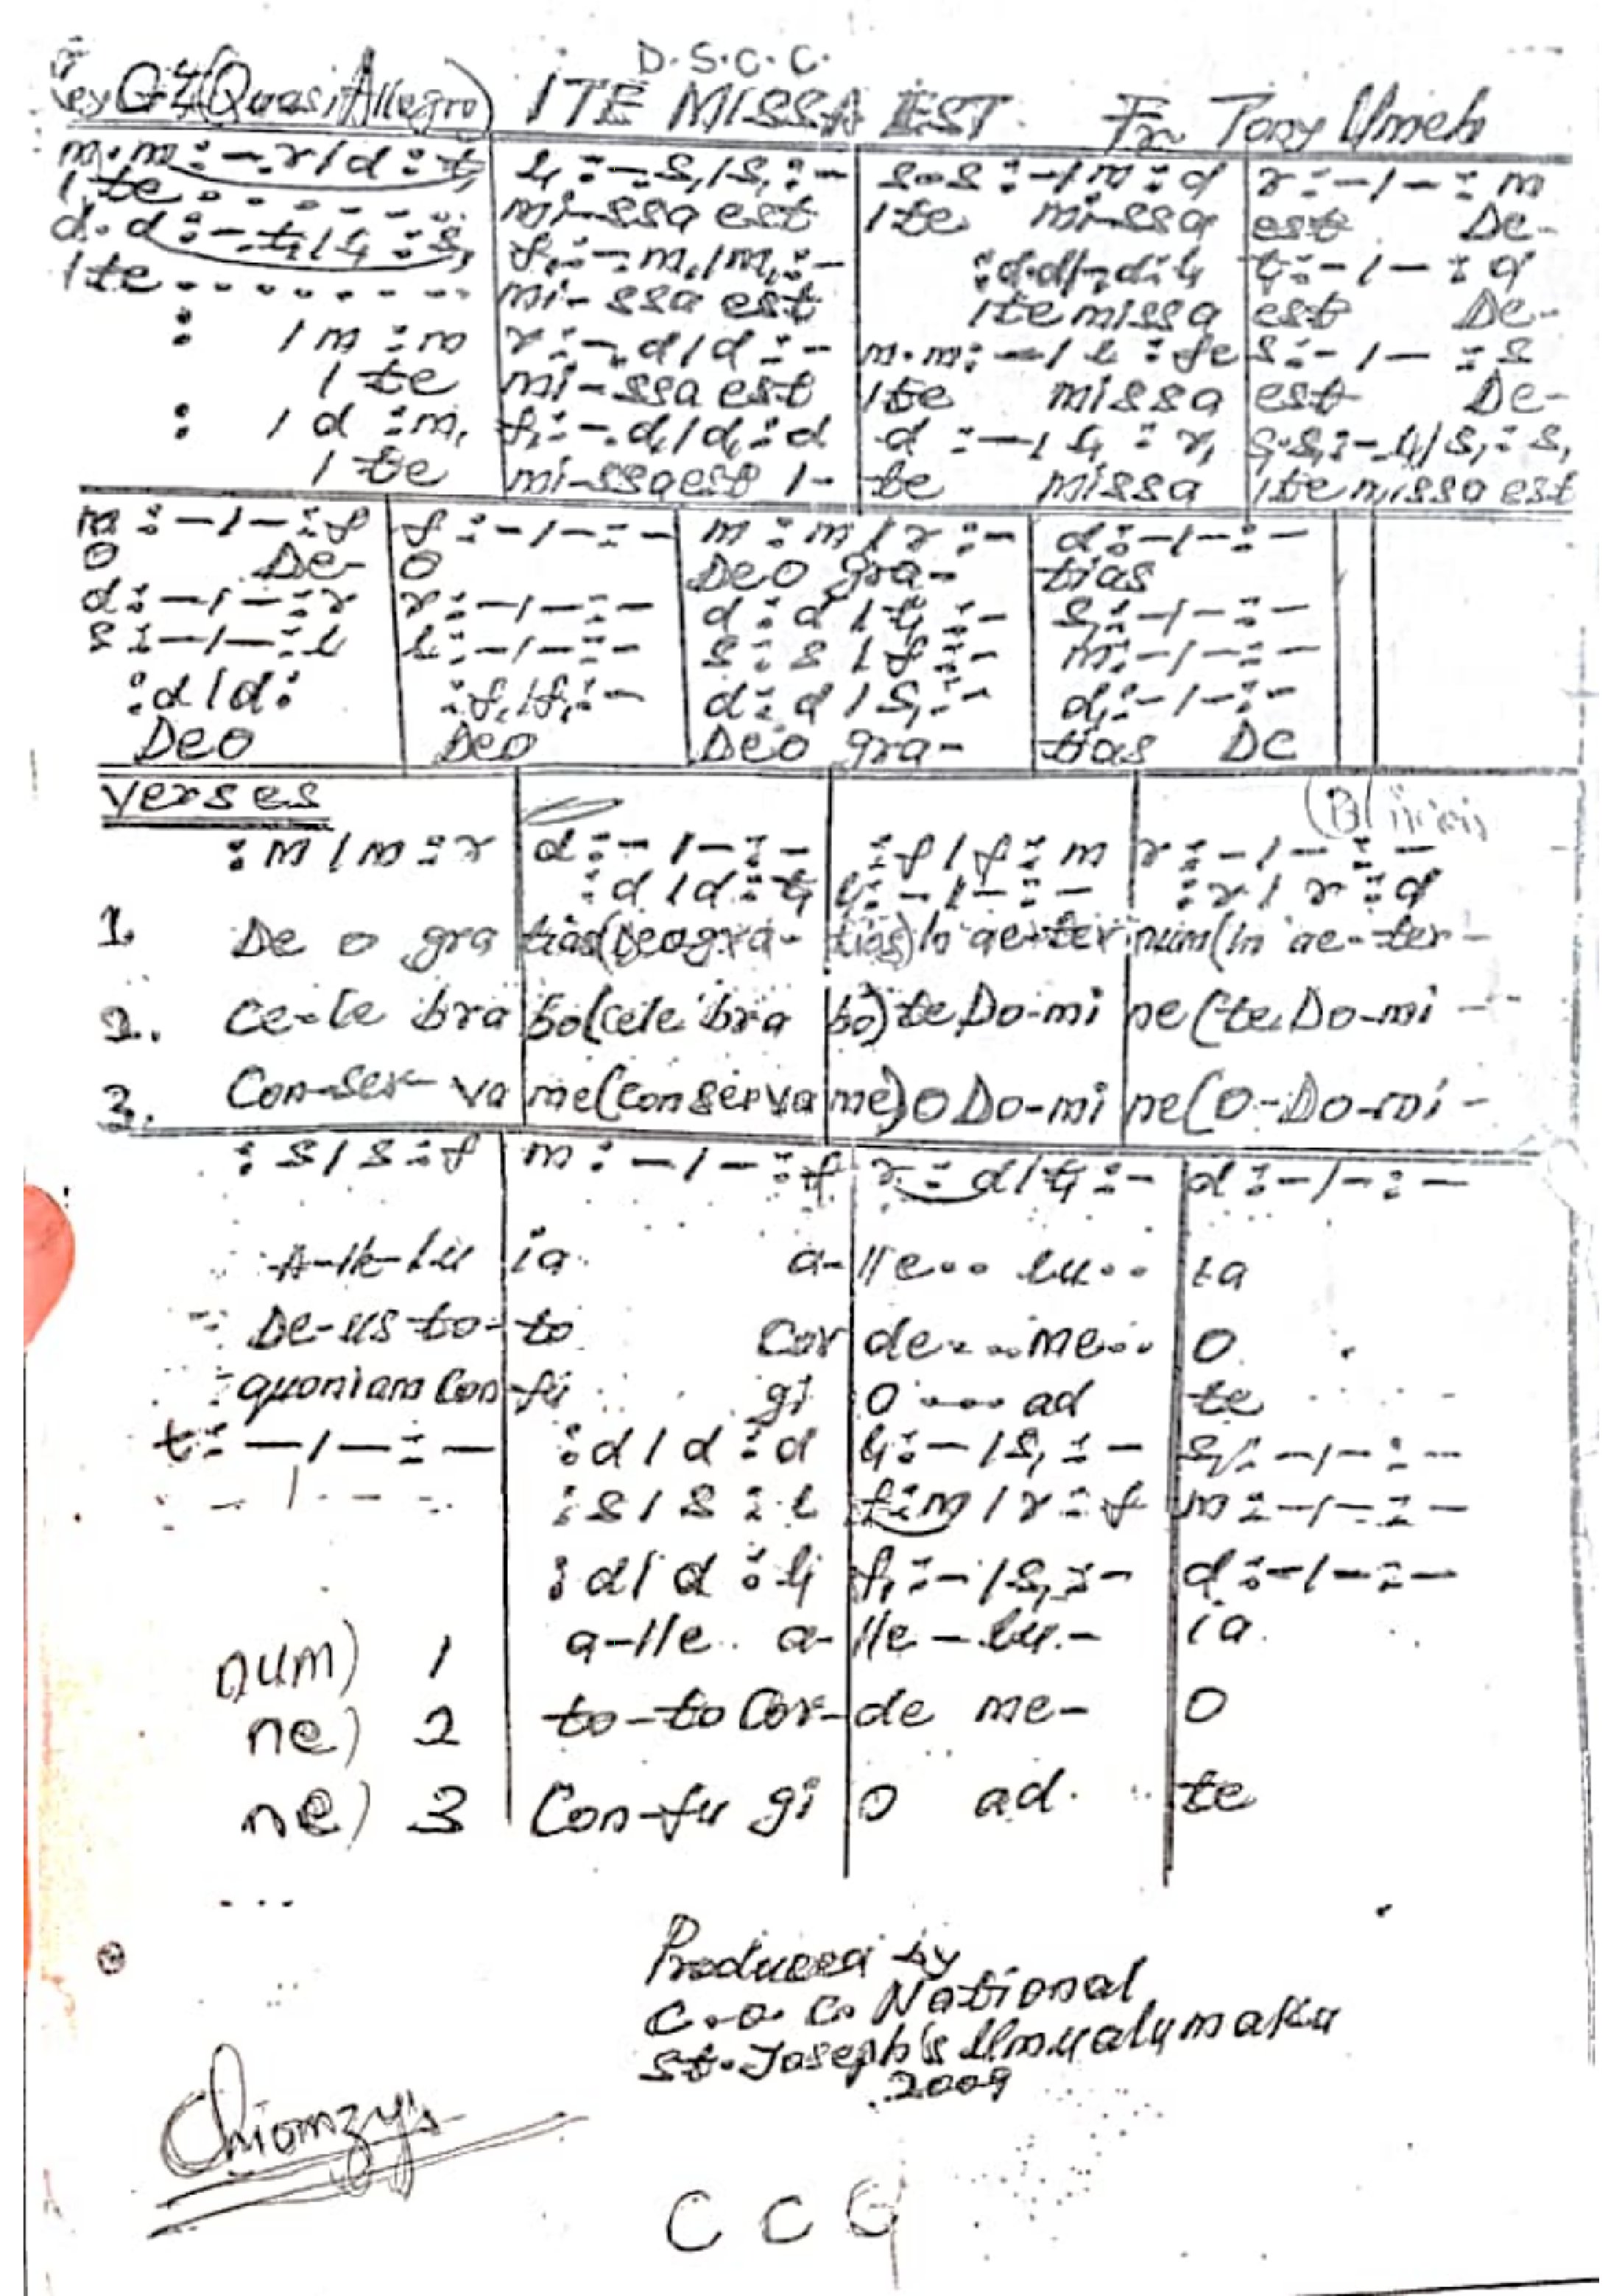 D.S.C.C.
Key G 4/4 (Quasi Allegro) ITE MISSA EST. Fr Tony Umeh
m.m:-.r/d:t, l,:-.s,/s,:- s.s:-/m:d r:-/-:m
Ite....... mi-ssa est Ite missa est De-
d.d:-.t,/l,:s, f,:-.m,/m,:- :d.d/-.d:l, t,:-/-:d
Ite........ mi-ssa est Ite missa est De-
: /m:m r:-.d/d:- m.m:-/l:fe s:-/-:s
Ite mi-ssa est Ite missa est De-
: /d:m, f,:-.d,/d,:d d:-/l,:r, s,.s,:-.l,/s,:s,
Ite mi-ssa est I- te missa Ite missa est
m:-/-:f f:-/-:- m:m/r:- d:-/-:-
O De- O Deo gra- tias
d:-/-:r r:-/-:- d:d/t,:- s,:-/-:-
s:-/-:l l:-/-:- s:s/f:- m:-/-:-
:d/d: :f,/f,:- d:d/s,:- d,:-/-:-
Deo Deo Deo gra- tias De
Verses
:m/m:r d:-/-:- :f/f:m r:-/-:-
:d/d:t, l,:-/-:- :r/r:d
1. De o gra tias(Deo gra- tias) In ae-ter num(In ae-ter-
2. Ce-le bra bo(cele bra bo) te Do-mi ne(te Do-mi-
3. Con-ser-va me(conserva me) O Do-mi ne(O-Do-mi-
:s/s:f m:-/-:f r:d/t,:- d:-/-:-
A-lle-lu ia a-lle.. lu.. ia
De-us to-to Cor de....me... O
quoniam Con-fu gi O.... ad te
t:-/-:- :d/d:d l,:-/s,:- s,:-/-:-
:s/s:l f:m/r:f m:-/-:-
:d/d:l, f,:-/s,:- d:-/-:-
a-lle.. a-lle-lu.- ia
num) 1
ne) 2 to-to Cor-de me- O
ne) 3 Con-fu gi O ad. te
Produced by
C.O.C. National
St. Joseph's Umualumaku
2009
Chiomzy's
C C C